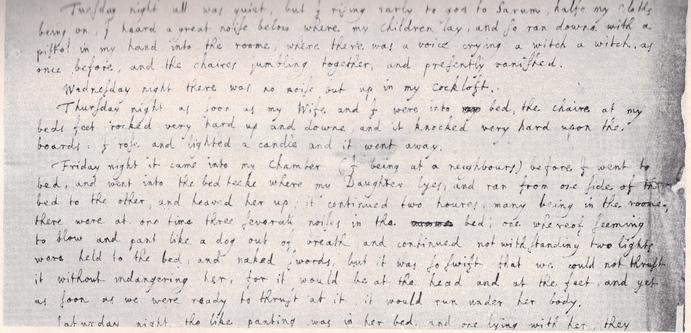 Tuesday night all was quiet, but I rising early to goo to Sarum, halfe my cloths
being on, I heard a great noise below where my children lay, and so ran downe with a
pistol in my hand into the roome, where there was a voice crying a witch a witch, as
once before, and the chaires jumbling together, and presently vanished.
Wednesday night there was no noise but up in my Cockloft.
Thursday night as soon as my Wife and I were into bed, the chaire at my
beds feet rocked very hard up and downe, and it knocked very hard upon the
boards: I rose and lighted a candle and it went away.
Friday night it came into my Chamber (I being at a neighbours) before I went to
bed, and went into the bed where my Daughter lyes, and ran from one side of the
bed to the other, and heaved her up, it continued two houres, many being in the roome,
there were at one time three severall noises in the bed; one whereof seeming
to blow and pant like a dog out of breath and continued notwithstanding two lights
were held to the bed, and naked swords, but it was so swift that we could not thrust
it without indangering her, for it would be at the head and at the feet, and yet
as soon as we were ready to thrust at it it would run under her body.
Saturday night the like panting was in her bed, and one lying with her, they